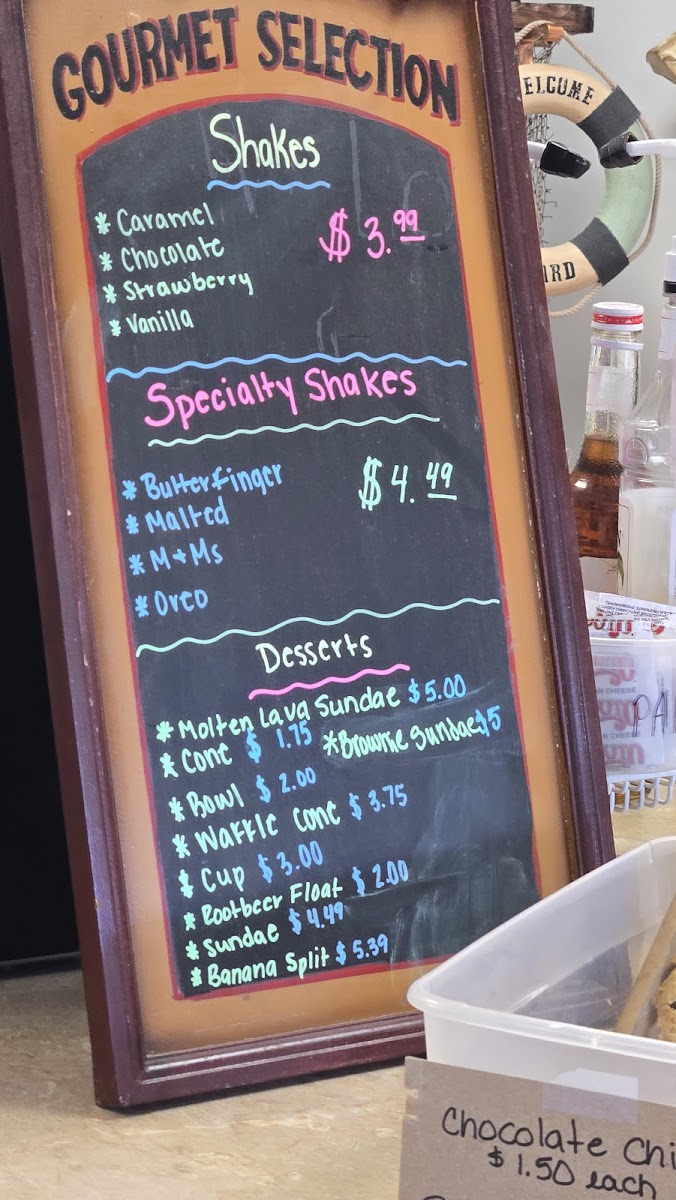 GOURMET SELECTION
Shakes
* Caramel
* Chocolate
* Strawberry
* Vanilla
$3.99
Specialty Shakes
* Butterfinger
* Malted
* M+Ms
* Oreo
$4.49
Desserts
* Molten Lava Sundae $5.00
* Cone $1.75 * Brownie Sundae $5
* Bowl $2.00
* Waffle Cone $3.75
* Cup $3.00
* Rootbeer Float $2.00
* Sundae $4.49
* Banana Split $5.39
ELCOME
ARD
AN CHEESE
PA
Chocolate Chi
$1.50 each